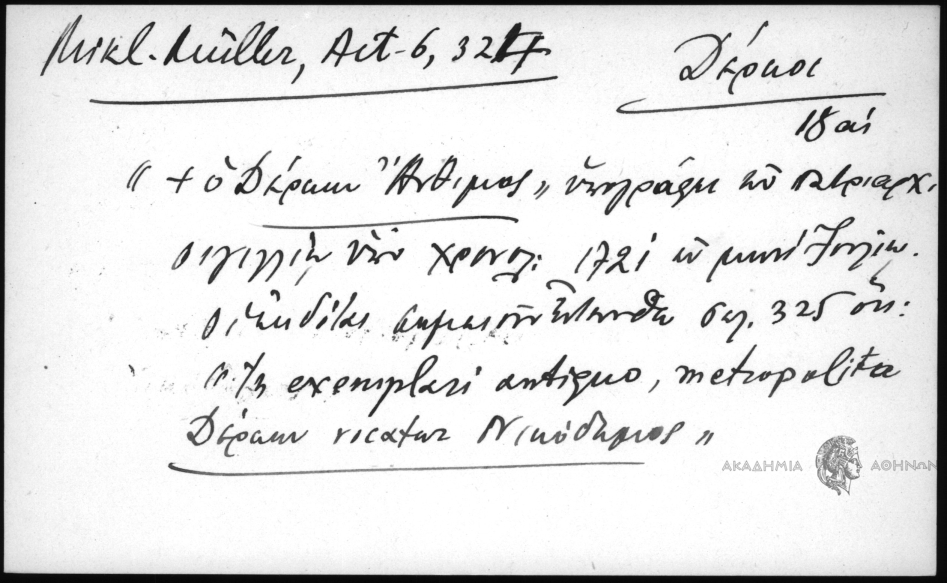 Mikl. Müller, Act. 6, 324
Δέρκοι
18 αἰ
"+ ὁ Δέρκων Ἄνθιμος" ὑπογράφει τὸ πατριαρχ.
σιγίλλιον ὑπὸ χρονολ: 1721 ἐν μηνὶ Ἰουλίῳ.
οἱ ἐκδόται σημειοῦν ἐνταῦθα σελ. 325 ὅτι:
"in exemplari antiquo, metropolita
Δέρκων vocatur Νικόδημος"
ΑΚΑΔΗΜΙΑ ΑΘΗΝΩΝ